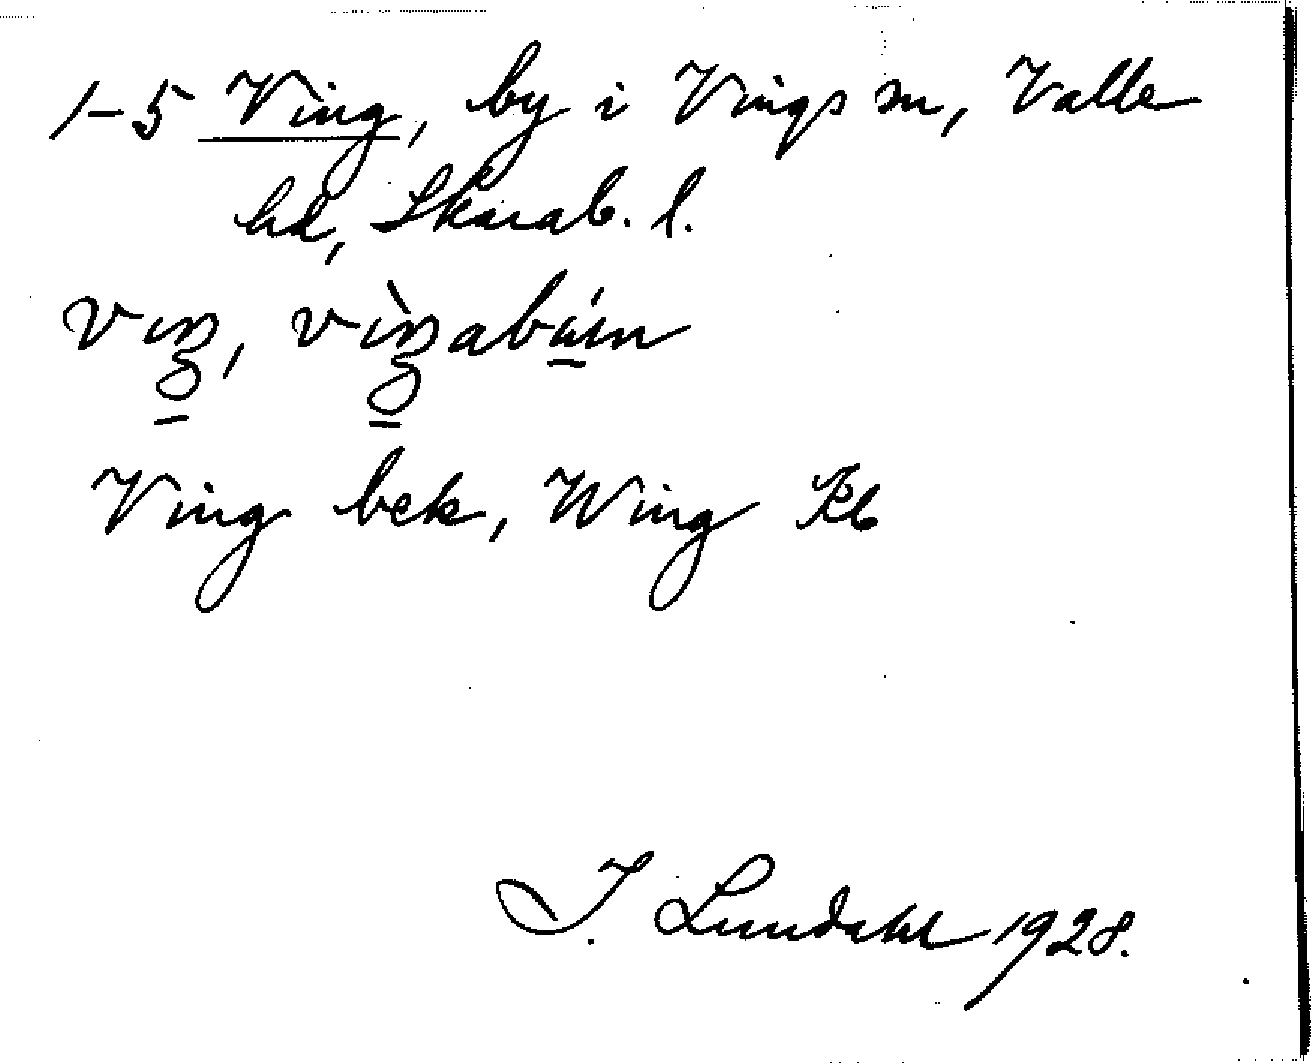 1-5 Ving, by i Vings sn, Valle
hd, Skarab. l.
Ving bek, Wing Kb
I. Lundahl 1928.